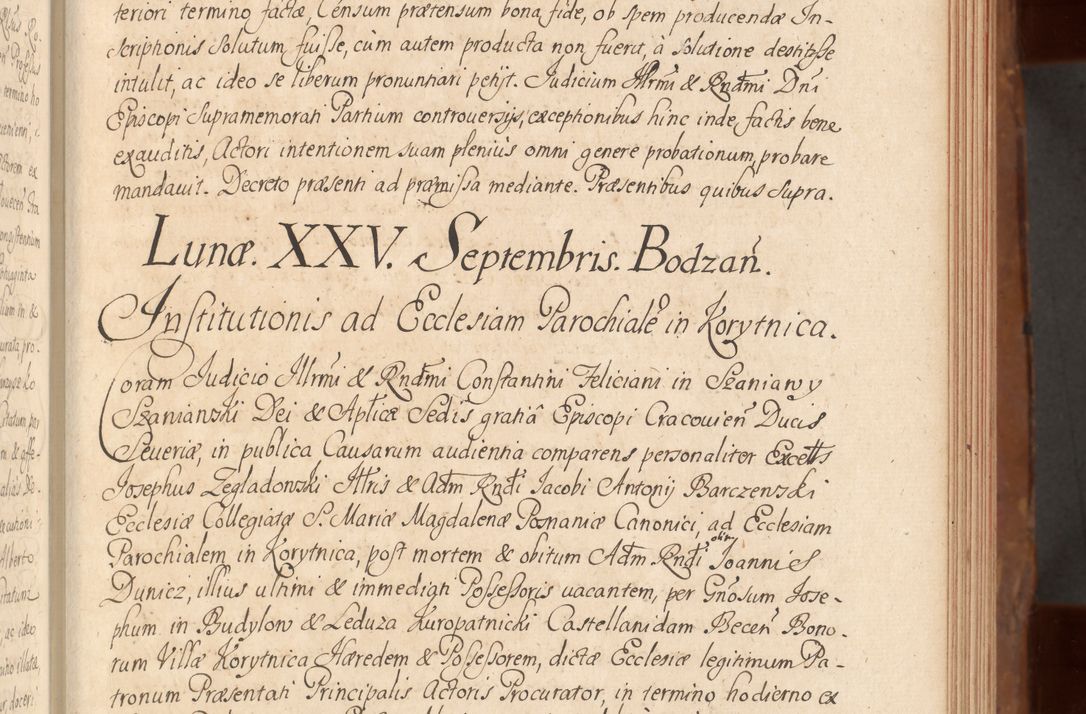 teriori termino factæ, Censum prætensum bona fide, ob spem producendæ In-
scriptionis solutum fuisse, cùm autem producta non fuerit, à solutione destitisse
intulit, ac ideo se liberum pronuntiari petijt. Judicium Illrmi & Rndmi Dni
Episcopi supramemorati Partium controversijs, exceptionibus hinc inde factis bene
exauditis, Actori intentionem suam plenius omni genere probationum probare
mandauit. Decreto præsenti ad præmissa mediante. Præsentibus quibus supra.
Lunæ. XXV. Septembris. Bodzan.
Institutionis ad Ecclesiam Parochiale in Korytnica.
Coram Judicio Illrmi & Rndmi Constantini Feliciani in Szaniawy
Szaniawski Dei & Aplicæ Sedis gratiâ Episcopi Cracovien Ducis
Severiæ, in publica Causarum audientia comparens personaliter Excells
Josephus Zegladowski Illris & Adm Rndi Jacobi Antonij Barczewski
Ecclesiæ Collegiatæ S. Mariæ Magdalenæ Posnaniæ Canonici, ad Ecclesiam
Parochialem in Korytnica, post mortem & obitum Adm Rndi olim Joannis
Dunicz, illius ultimi & immediati Possessoris vacantem, per Gnosum Jose-
phum in Budylow & Leduza Kuropatnicki Castellanidam Becen Bono-
rum Villæ Korytnica Hæredem & Possessorem, dictæ Ecclesiæ legitimum Pa-
tronum Præsentati Principalis Actoris Procurator, in termino hodierno ex